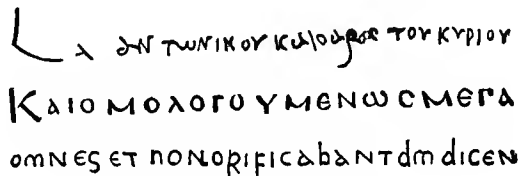 L α αντωνινου καισαρος του κυριου
ΚΑΙΟΜΟΛΟΓΟΥΜΕΝΩϹΜΕΓΑ
omNes eT hoNoRificabaNT dm diceN